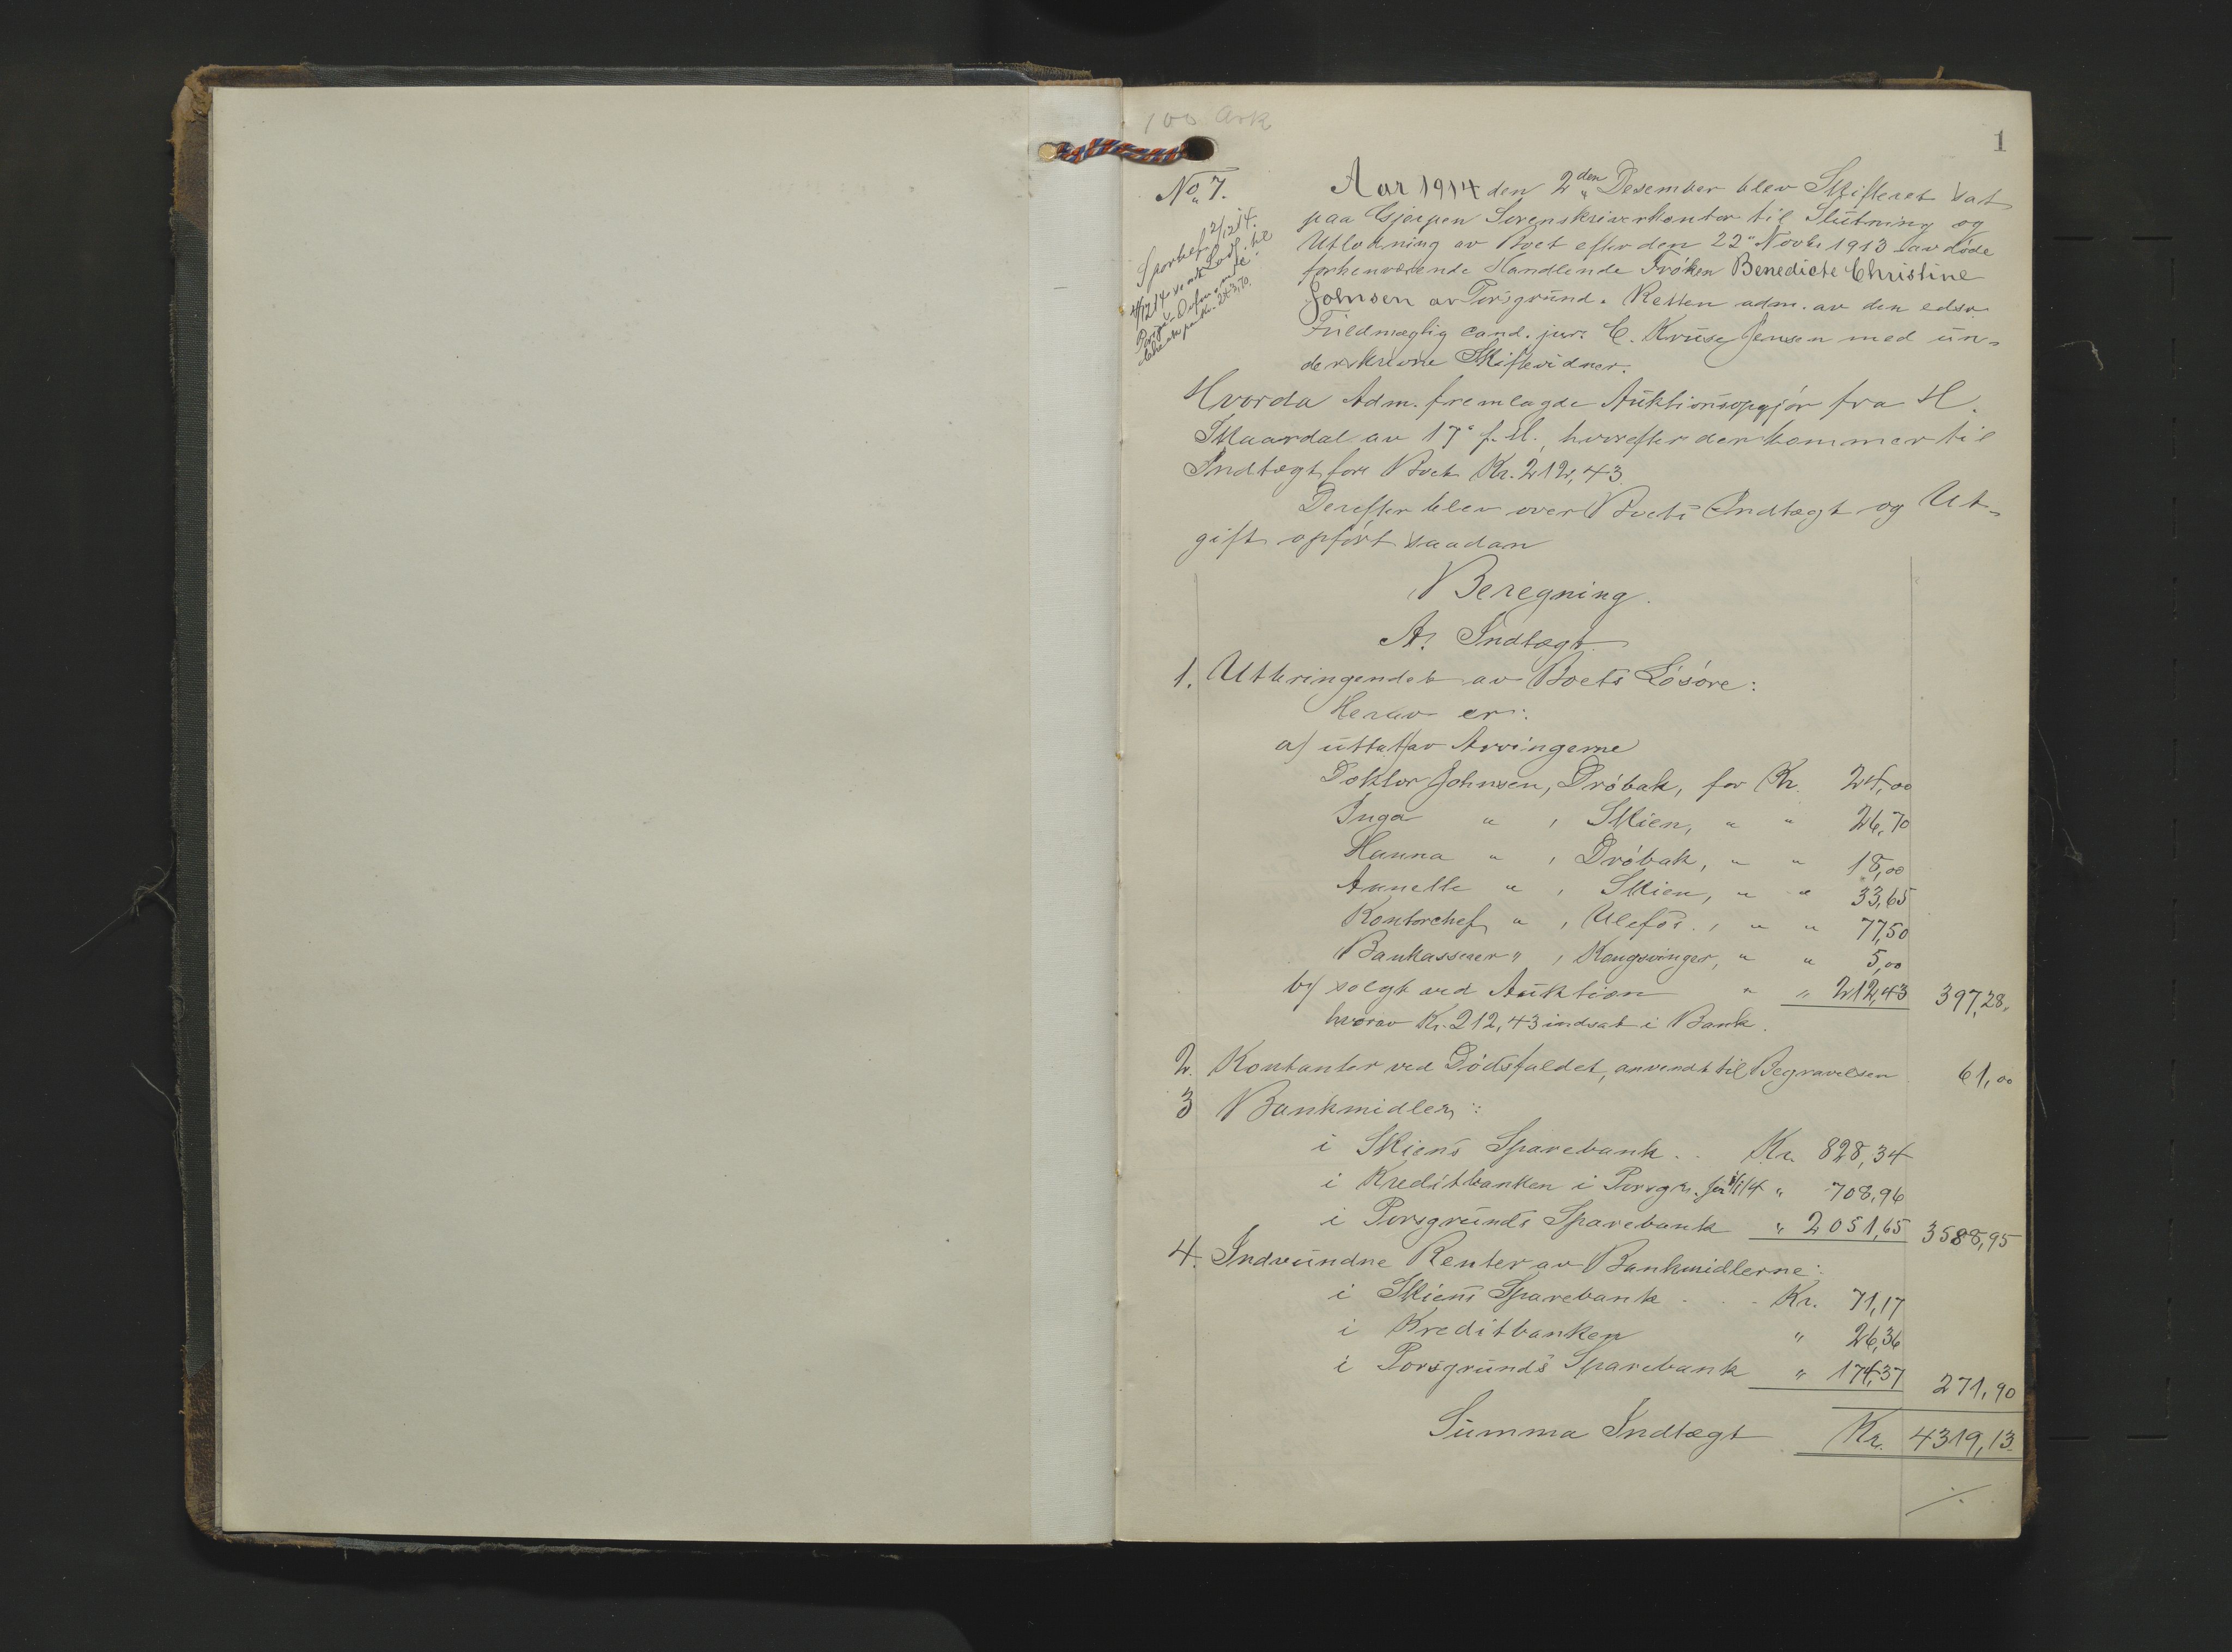 100 Ark
1
No. 7.
2/12 14.
Aar 1914 den 2den Desember blev Skifteret sat
paa Gjerpen Sorenskriverkontor til Slutning og
Utlodning av Boet efter den 22" Novbr 1913 avdøde
forhenværende Handlende Frøken Benedicte Christine
Johnsen av Porsgrund. Retten adm. av den edsv.
Fuldmægtig cand. jur. C. Kruse Jensen med un-
derskrevne Skiftevidner.
Hvorda Adm. fremlagde Auktionsopgjør fra H.
Skaardal av 17" f. M., hvorefter der kommer til
Indtægt for Boet Kr. 212,43.
Derefter blev over Boets Indtægt og Ut-
gift opført saadan
Beregning.
A. Indtægt
1. Utbringendet av Boets Løsøre:
Herav er:
a) uttat av Arvingerne
Doktor Johnsen, Drøbak, for Kr. 24,00
Inga " , Skien, " " 26,70
Hanna " , Drøbak, " " 18,00
Annette " , Skien, " " 33,65
Kontorchef " , Ulefos, " " 77,50
Bankasserer " , Kongsvinger, " " 5,00
b) solgt ved Auktion " " 212,43 397,28
hvorav Kr. 212,43 indsat i Bank.
2. Kontanter ved Dødsfaldet, anvendt til Begravelsen 61,00
3 Bankmidler:
i Skiens Sparebank . . Kr. 828,34
i Kreditbanken i Porsgr. 1/1 14 " 708,96
i Porsgrunds Sparebank " 2051,65 3588,95
4. Indvundne Renter av Bankmidlerne:
i Skiens Sparebank . . Kr. 71,17
i Kreditbanken " 26,36
i Porsgrunds Sparebank " 174,37 271,90
Summa Indtægt Kr. 4319,13